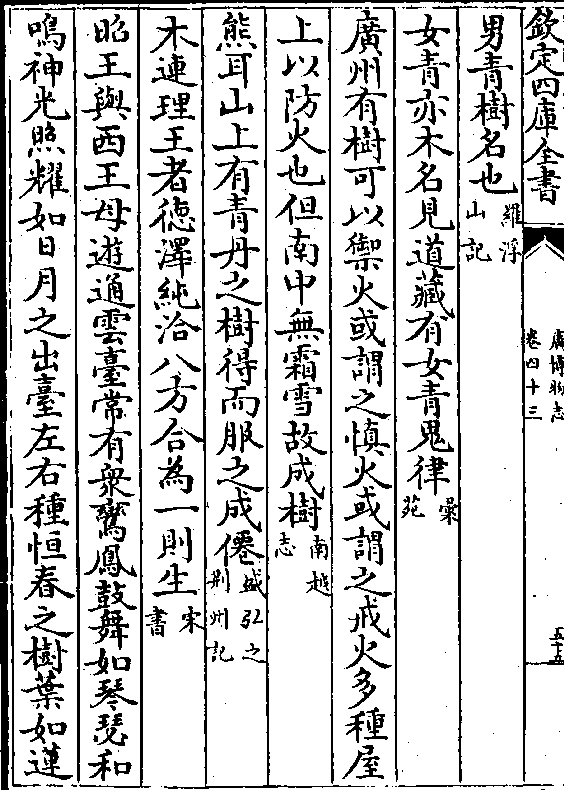 欽定四庫全書
廣博物志
卷四十三
五十五
男青樹名也羅浮山記
女青亦木名見道藏有女青鬼律彙苑
廣州有樹可以禦火或謂之慎火或謂之戒火多種屋
上以防火也但南中無霜雪故成樹南越志
熊耳山上有青丹之樹得而服之成僊盛弘之荆州記
木連理王者德澤純洽八方合為一則生宋書
昭王與西王母遊通雲臺常有衆鸞鳳鼓舞如琴瑟和
鳴神光照耀如日月之出臺左右種恒春之樹葉如蓮